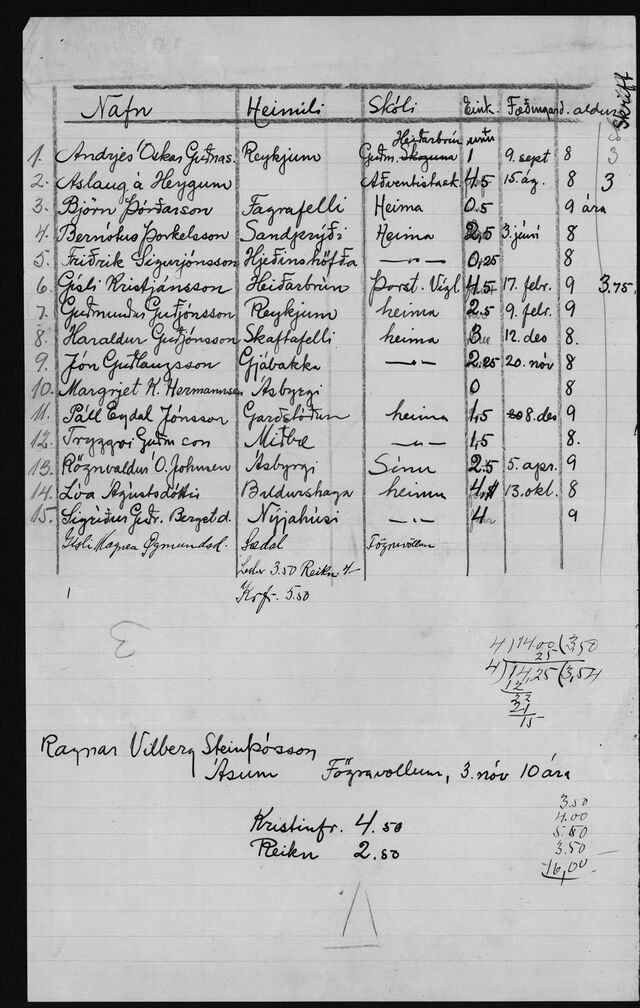 Nafn Heimili Skóli Eink. Fæðingard. aldur Skrift
Heiðarbrún
1. Andrjes Óskar Guðnas. Reykjum Guðm. 1 9. sept 8 3
2. Aslaug á Heygum Aðventistaek. 4.5 15. ág. 8 3
3. Björn Þórðarson Fagrafelli Heima 0.5 9 ára
4. Bernótus Þorkelsson Sandprýði Heima 2,5 3. júní 8
5. Friðrik Sigurjónsson Hjeðinshöfða —"— 0,25 8
6. Gísli Kristjánsson Heiðarbrún Þorst. Vigl. 4.5 17. febr. 9 3.75
7. Guðmundur Guðjónsson Reykjum heima 2,5 9. febr. 9
8. Haraldur Guðjónsson Skaftafelli heima 3 12. des 8.
9. Jón Guðlaugsson Gjábakka —"— 2,25 20. nóv 8
10. Margrjet K. Hermannsen Ásbyrgi 0 8
11. Páll Eydal Jónsson Garðstöðum heima 1,5 8. des 9
12. Tryggvi Guðm.son Miðbæ —"— 1,5 8.
13. Rögnvaldur Ó. Johnsen Ásbyrgi Sínu 2.5 5. apr. 9
14. Lóa Ágústsdóttir heima 4, 13. okt. 8
15. Sigríður Guðr. Bergst.d. Nýjahúsi —"— 4 9
Magnea Øgmundsd. Lögravollum
3.50 Reikn 4
Krfr. 5.50
3
4)14.00(3,50
25
4)14,25(3,54
12
22
21
15
Ragnar Vilberg Steinþósson
Ásum Fögravollum, 3. nóv 10 ára
3.50
Kristinfr. 4.50 4.00
5.50
Reikn 2.50 3.50
16,00